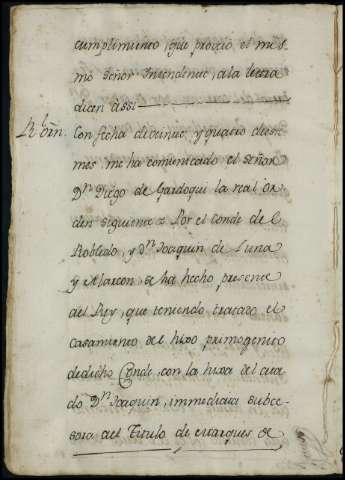 cumplimiento, que proveio el mis-
mo Señor Intendente, a la letra
dicen assi
Rl. orn. Con fecha de veinte y quatro de este
mes me ha comunicado el señor
Dn. Diego de Gardoqui la real or-
den siguiente = Por el conde de
Robledo, y Dn. Joaquin de Luna
y Alarcon, se ha hecho presente
al Rey, que teniendo tratado el
casamiento del hixo primogenito
de dicho Conde, con la hixa del cita-
do Dn. Joaquin, immediata subce-
sora al Titulo de Marques de